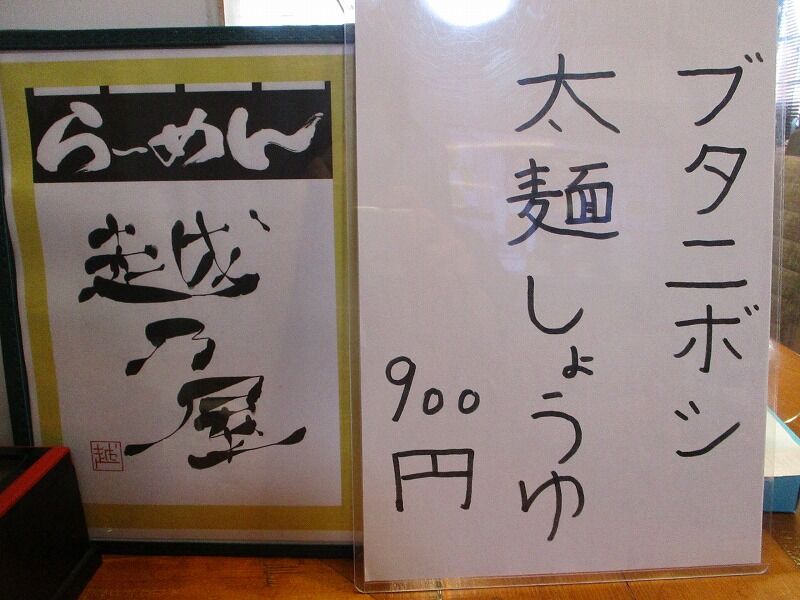 らーめん
越乃屋
越
ブタニボシ
太麺しょうゆ
900円